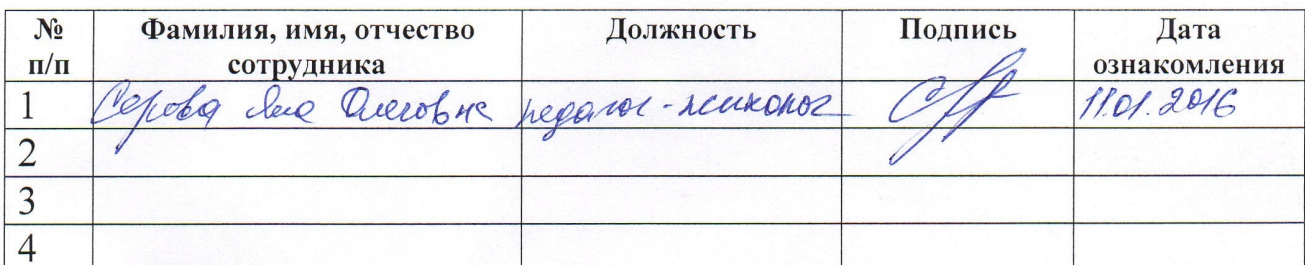 № п/п Фамилия, имя, отчество сотрудника Должность Подпись Дата ознакомления
1 Серова Яна Олеговна педагог-психолог 11.01.2016
2
3
4